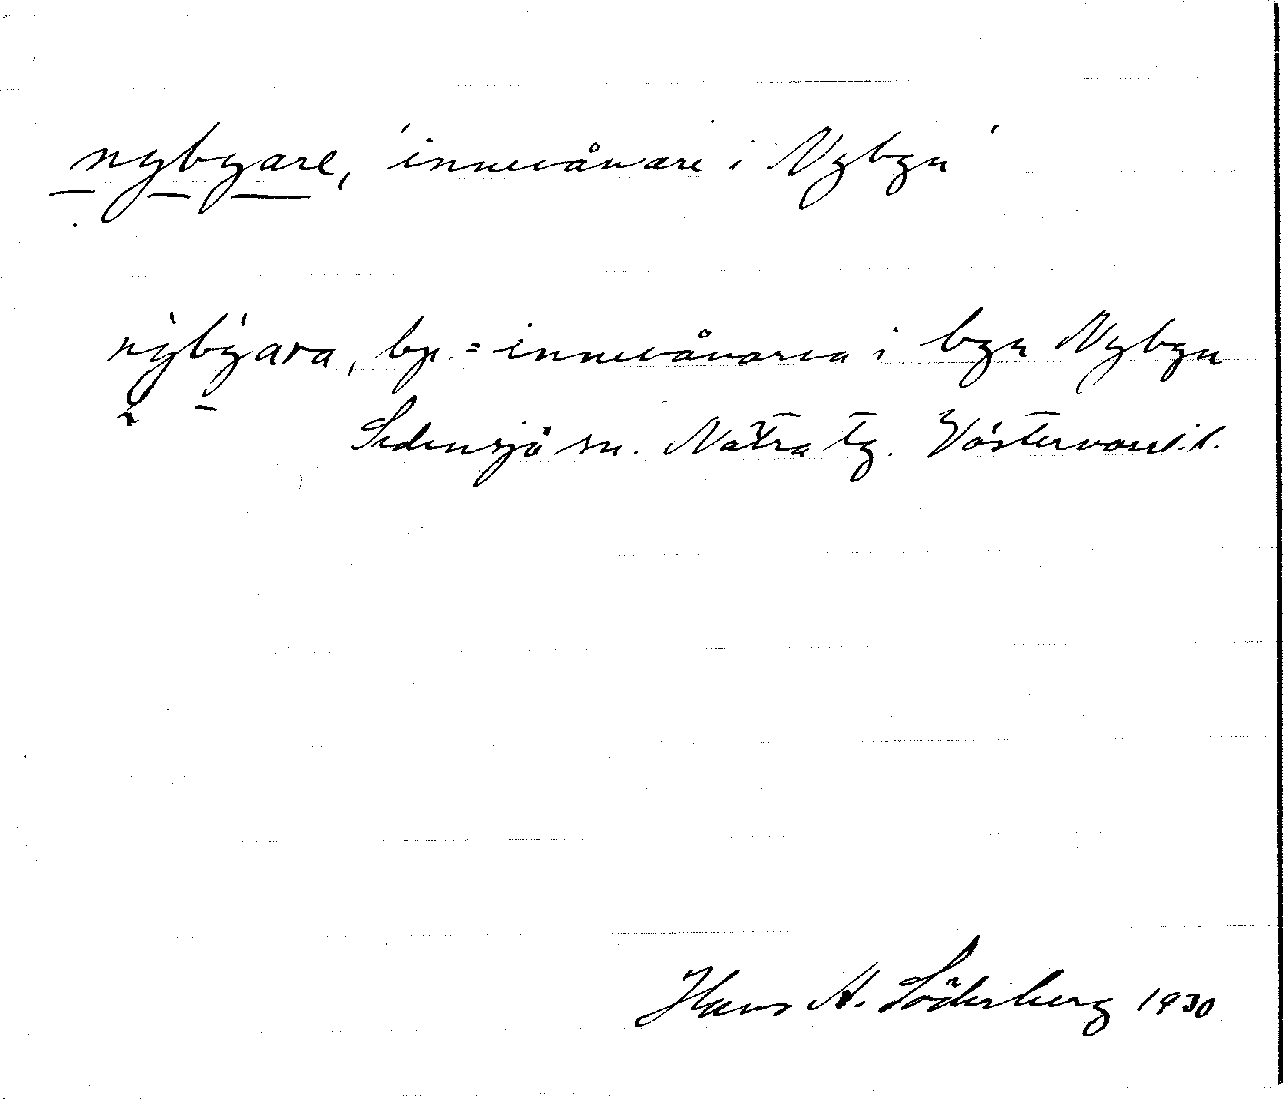 nybyare, 'innevånare i Nybyn'
nỳbýara, bp. = innevånarna i byn Nybyn
Sidensjö sn. Nätra tg. Västernorrl. l.
Hans A. Söderberg 1930